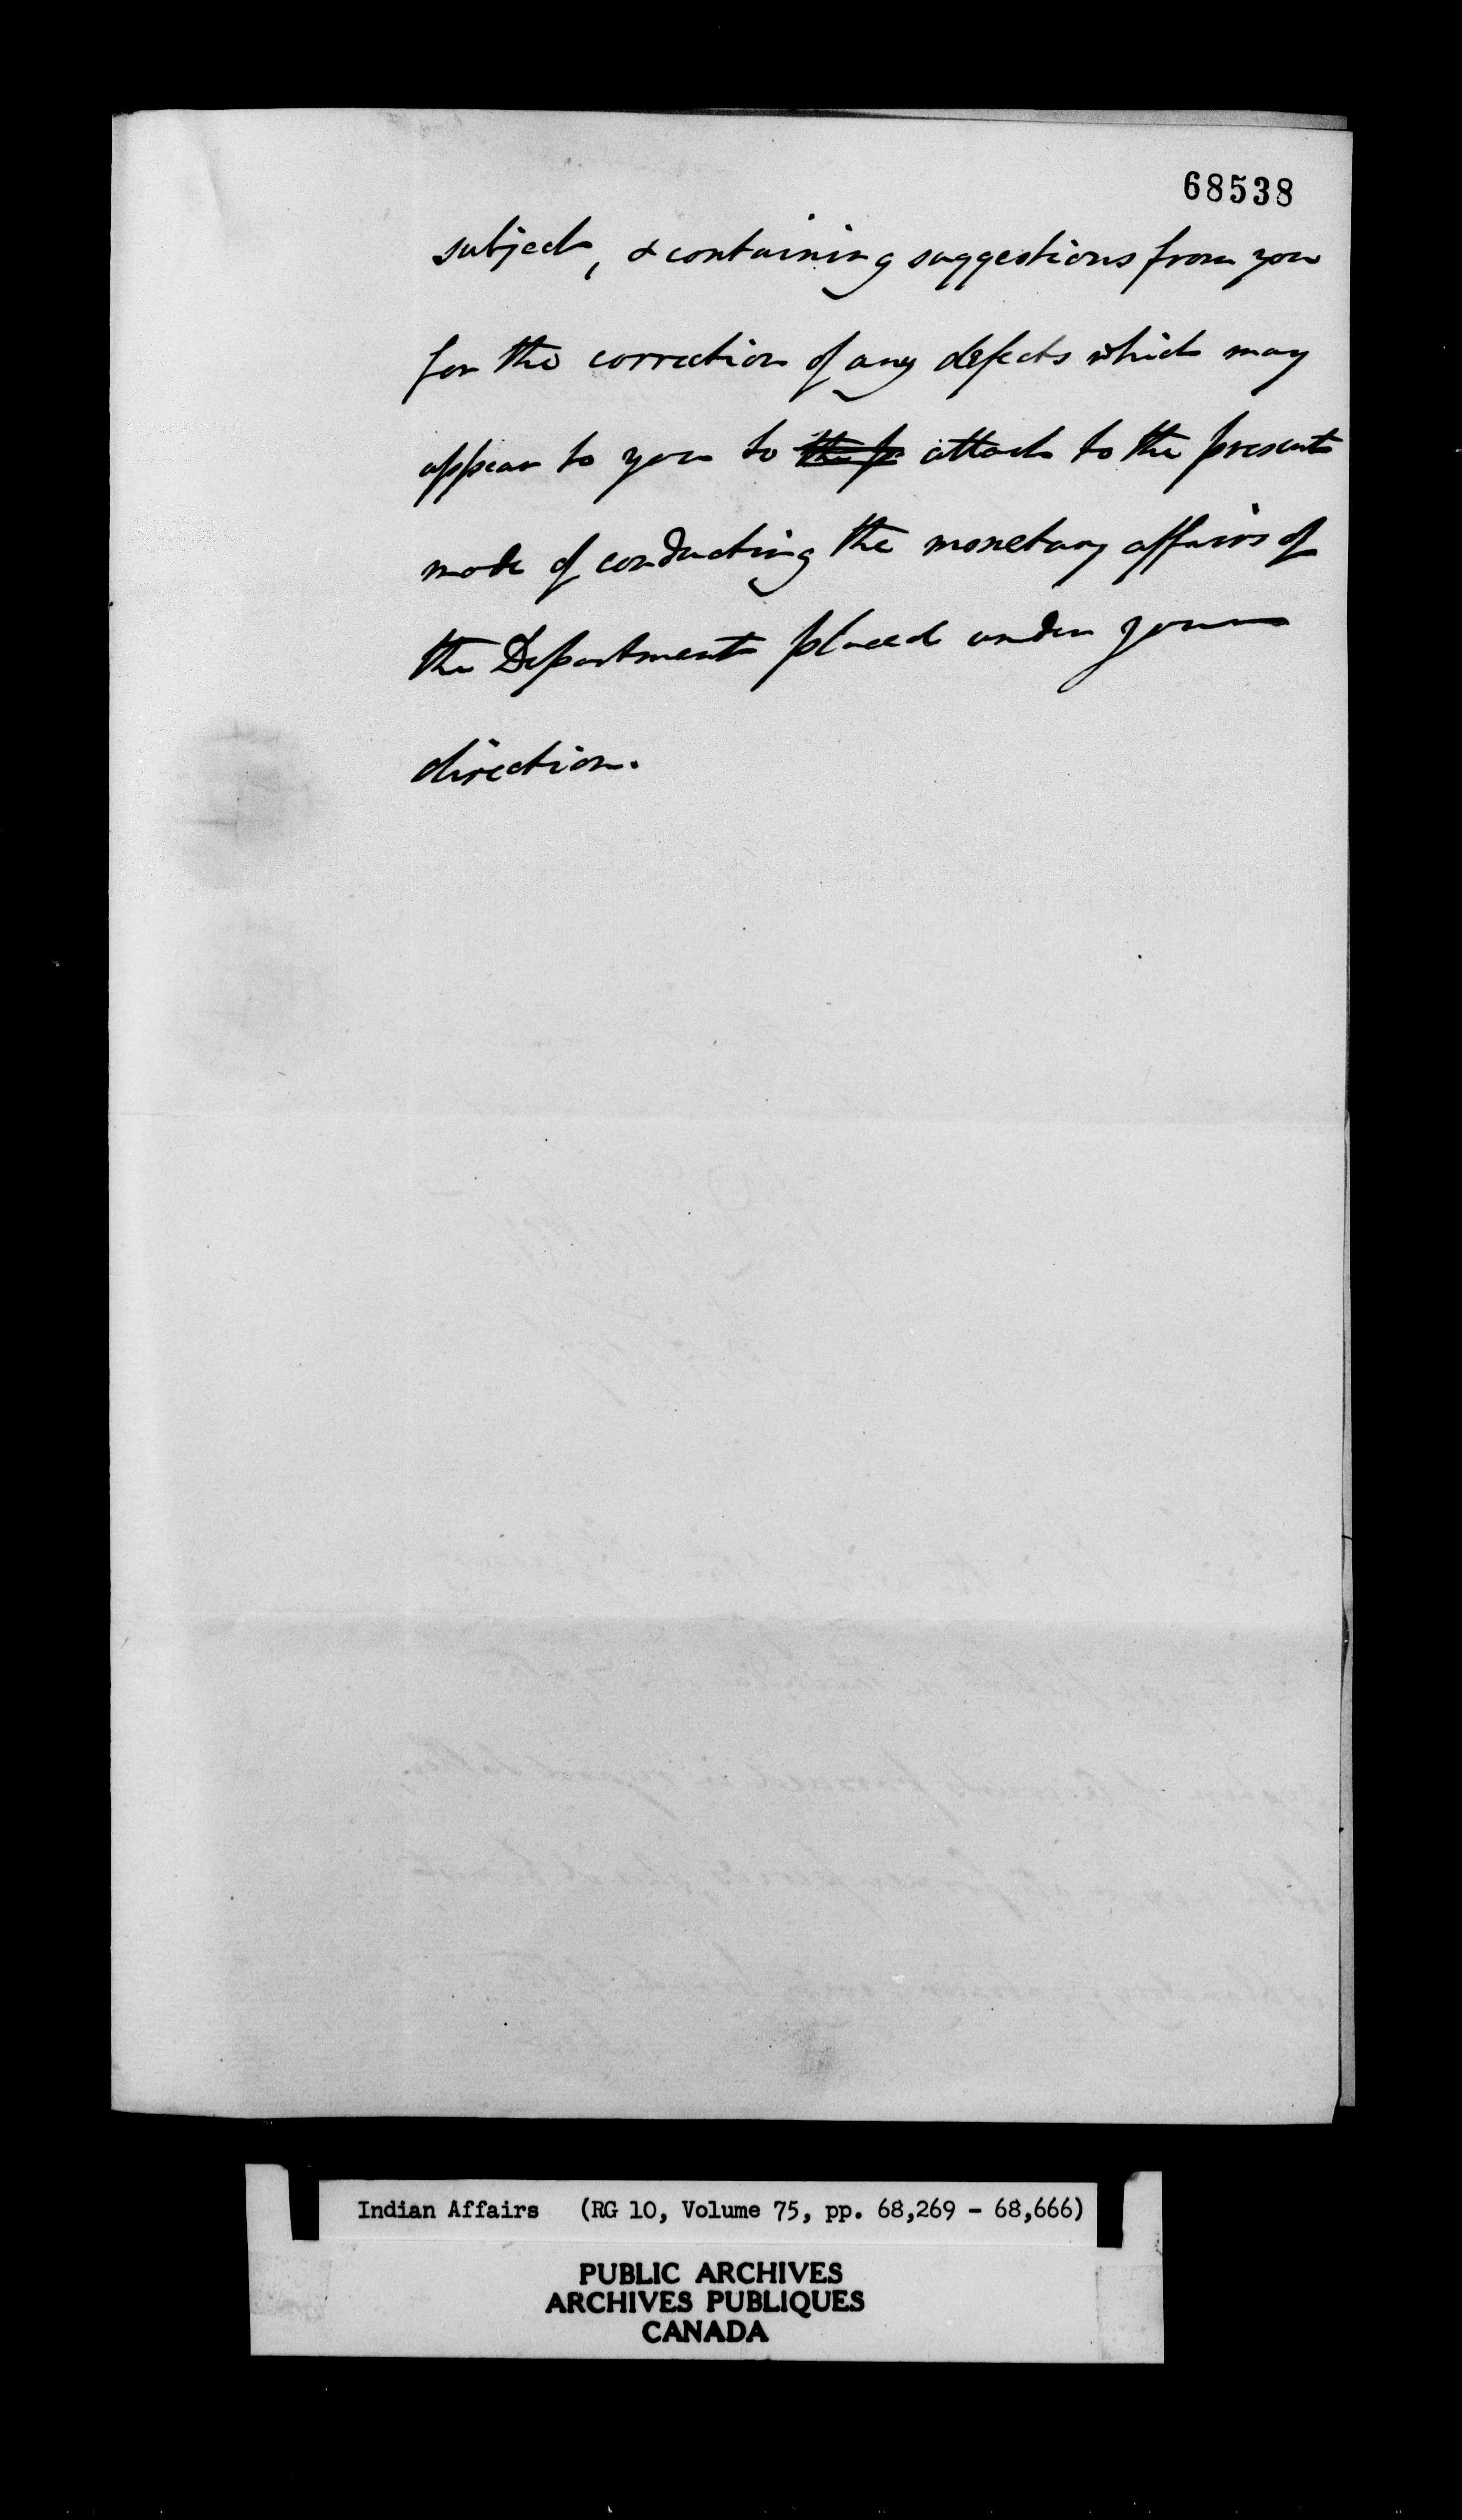 68538
subject, & containing suggestions from you
for the correction of any defects which may
appear to you to the p attach to the present
mode of conducting the monetary affairs of
the Department placed under your
direction.
Indian Affairs (RG 10, Volume 75, pp. 68,269 - 68,666)
PUBLIC ARCHIVES
ARCHIVES PUBLIQUES
CANADA